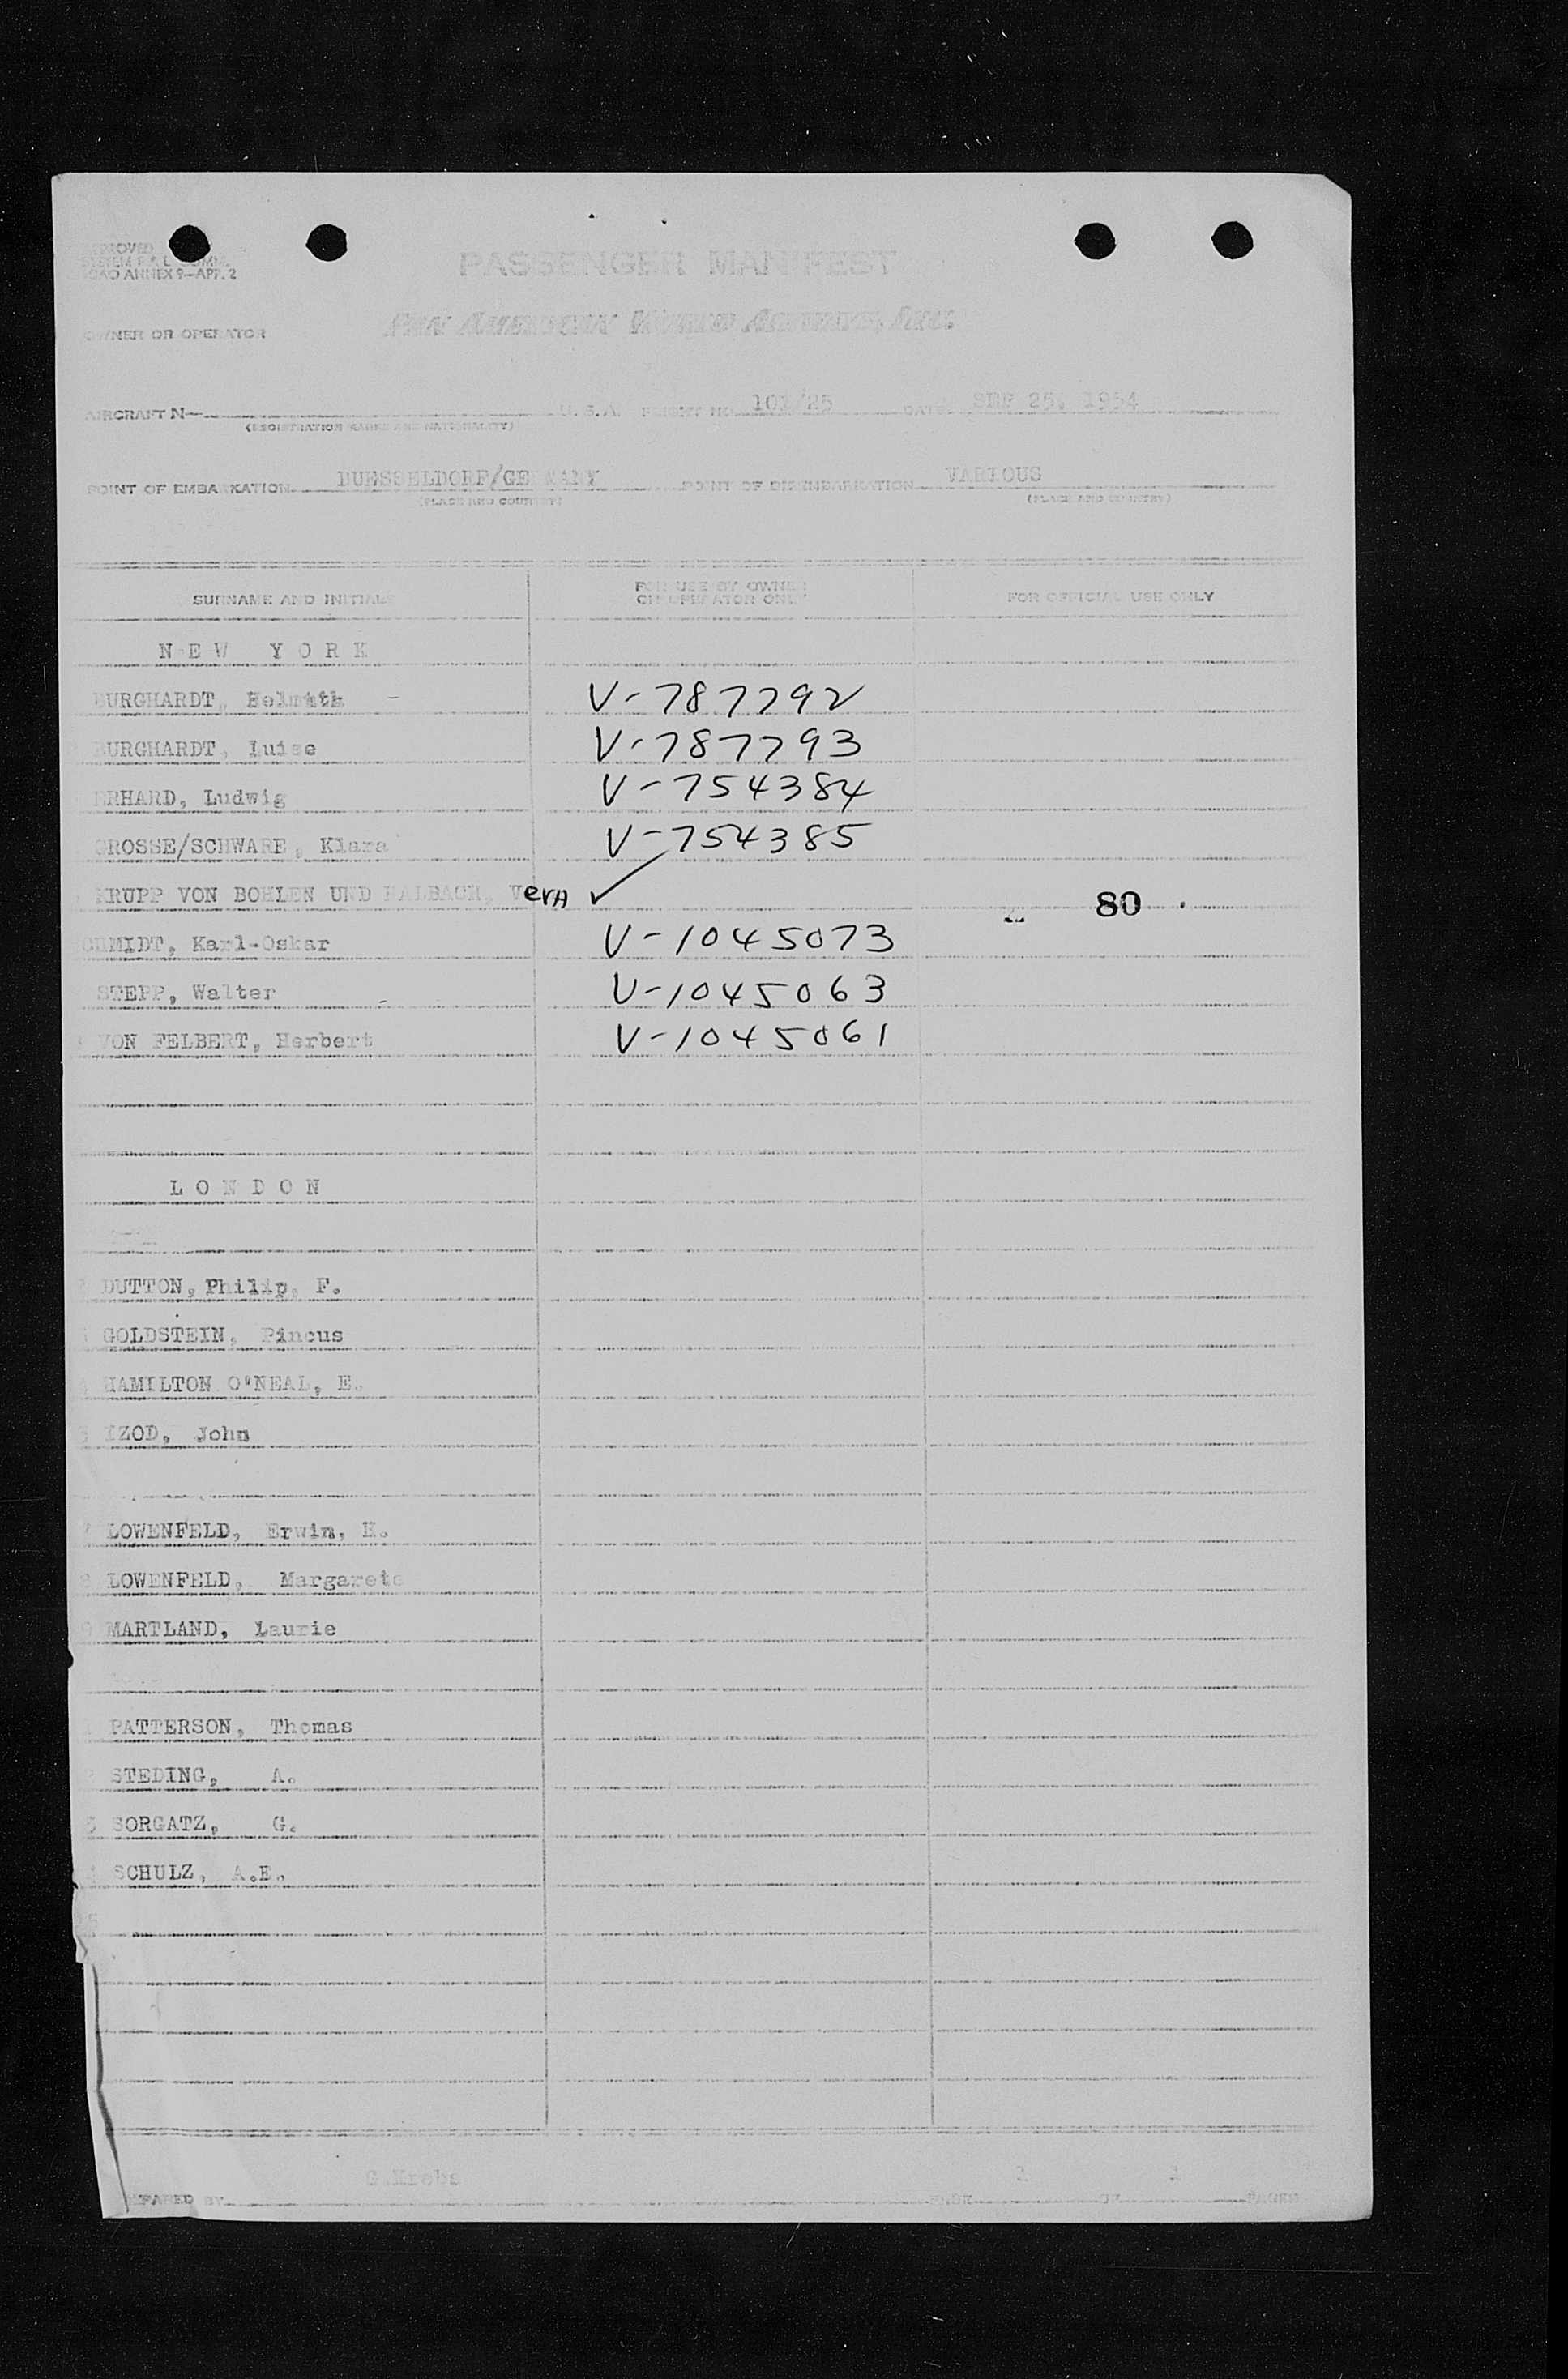 PASSENGER MANIFEST
ANNEX 9-APP. 2
OWNER OR OPERATOR PAN AMERICAN WORLD AIRWAYS, INC.
AIRCRAFT N- U.S.A. FLIGHT NO. 101/25 DATE SEP 25, 1954
(REGISTRATION MARKS AND NATIONALITY)
POINT OF EMBARKATION DUESSELDORF/GERMANY POINT OF DISEMBARKATION VARIOUS
(PLACE AND COUNTRY) (PLACE AND COUNTRY)
SURNAME AND INITIALS FOR USE BY OWNER OR OPERATOR ONLY FOR OFFICIAL USE ONLY
NEW YORK
BURGHARDT, Helmuth - V-787792
BURGHARDT, Luise V-787793
ERHARD, Ludwig V-754384
GROSSE/SCHWARE, Klara V-754385
KRUPP VON BOHLEN UND HALBACH, VerA ✓ 80
SCHMIDT, Karl-Oskar V-1045073
STEPP, Walter - V-1045063
VON FELBERT, Herbert V-1045061
LONDON
DUTTON, Philip, F.
GOLDSTEIN, Pincus
HAMILTON O'NEAL, E.
IZOD, John
LOWENFELD, Erwin, H.
LOWENFELD, Margarete
9 MARTLAND, Laurie
PATTERSON, Thomas
STEDING, A.
SORGATZ, G.
SCHULZ, A.E.
PREPARED BY G.Krebs PAGE 1 OF 1 PAGES